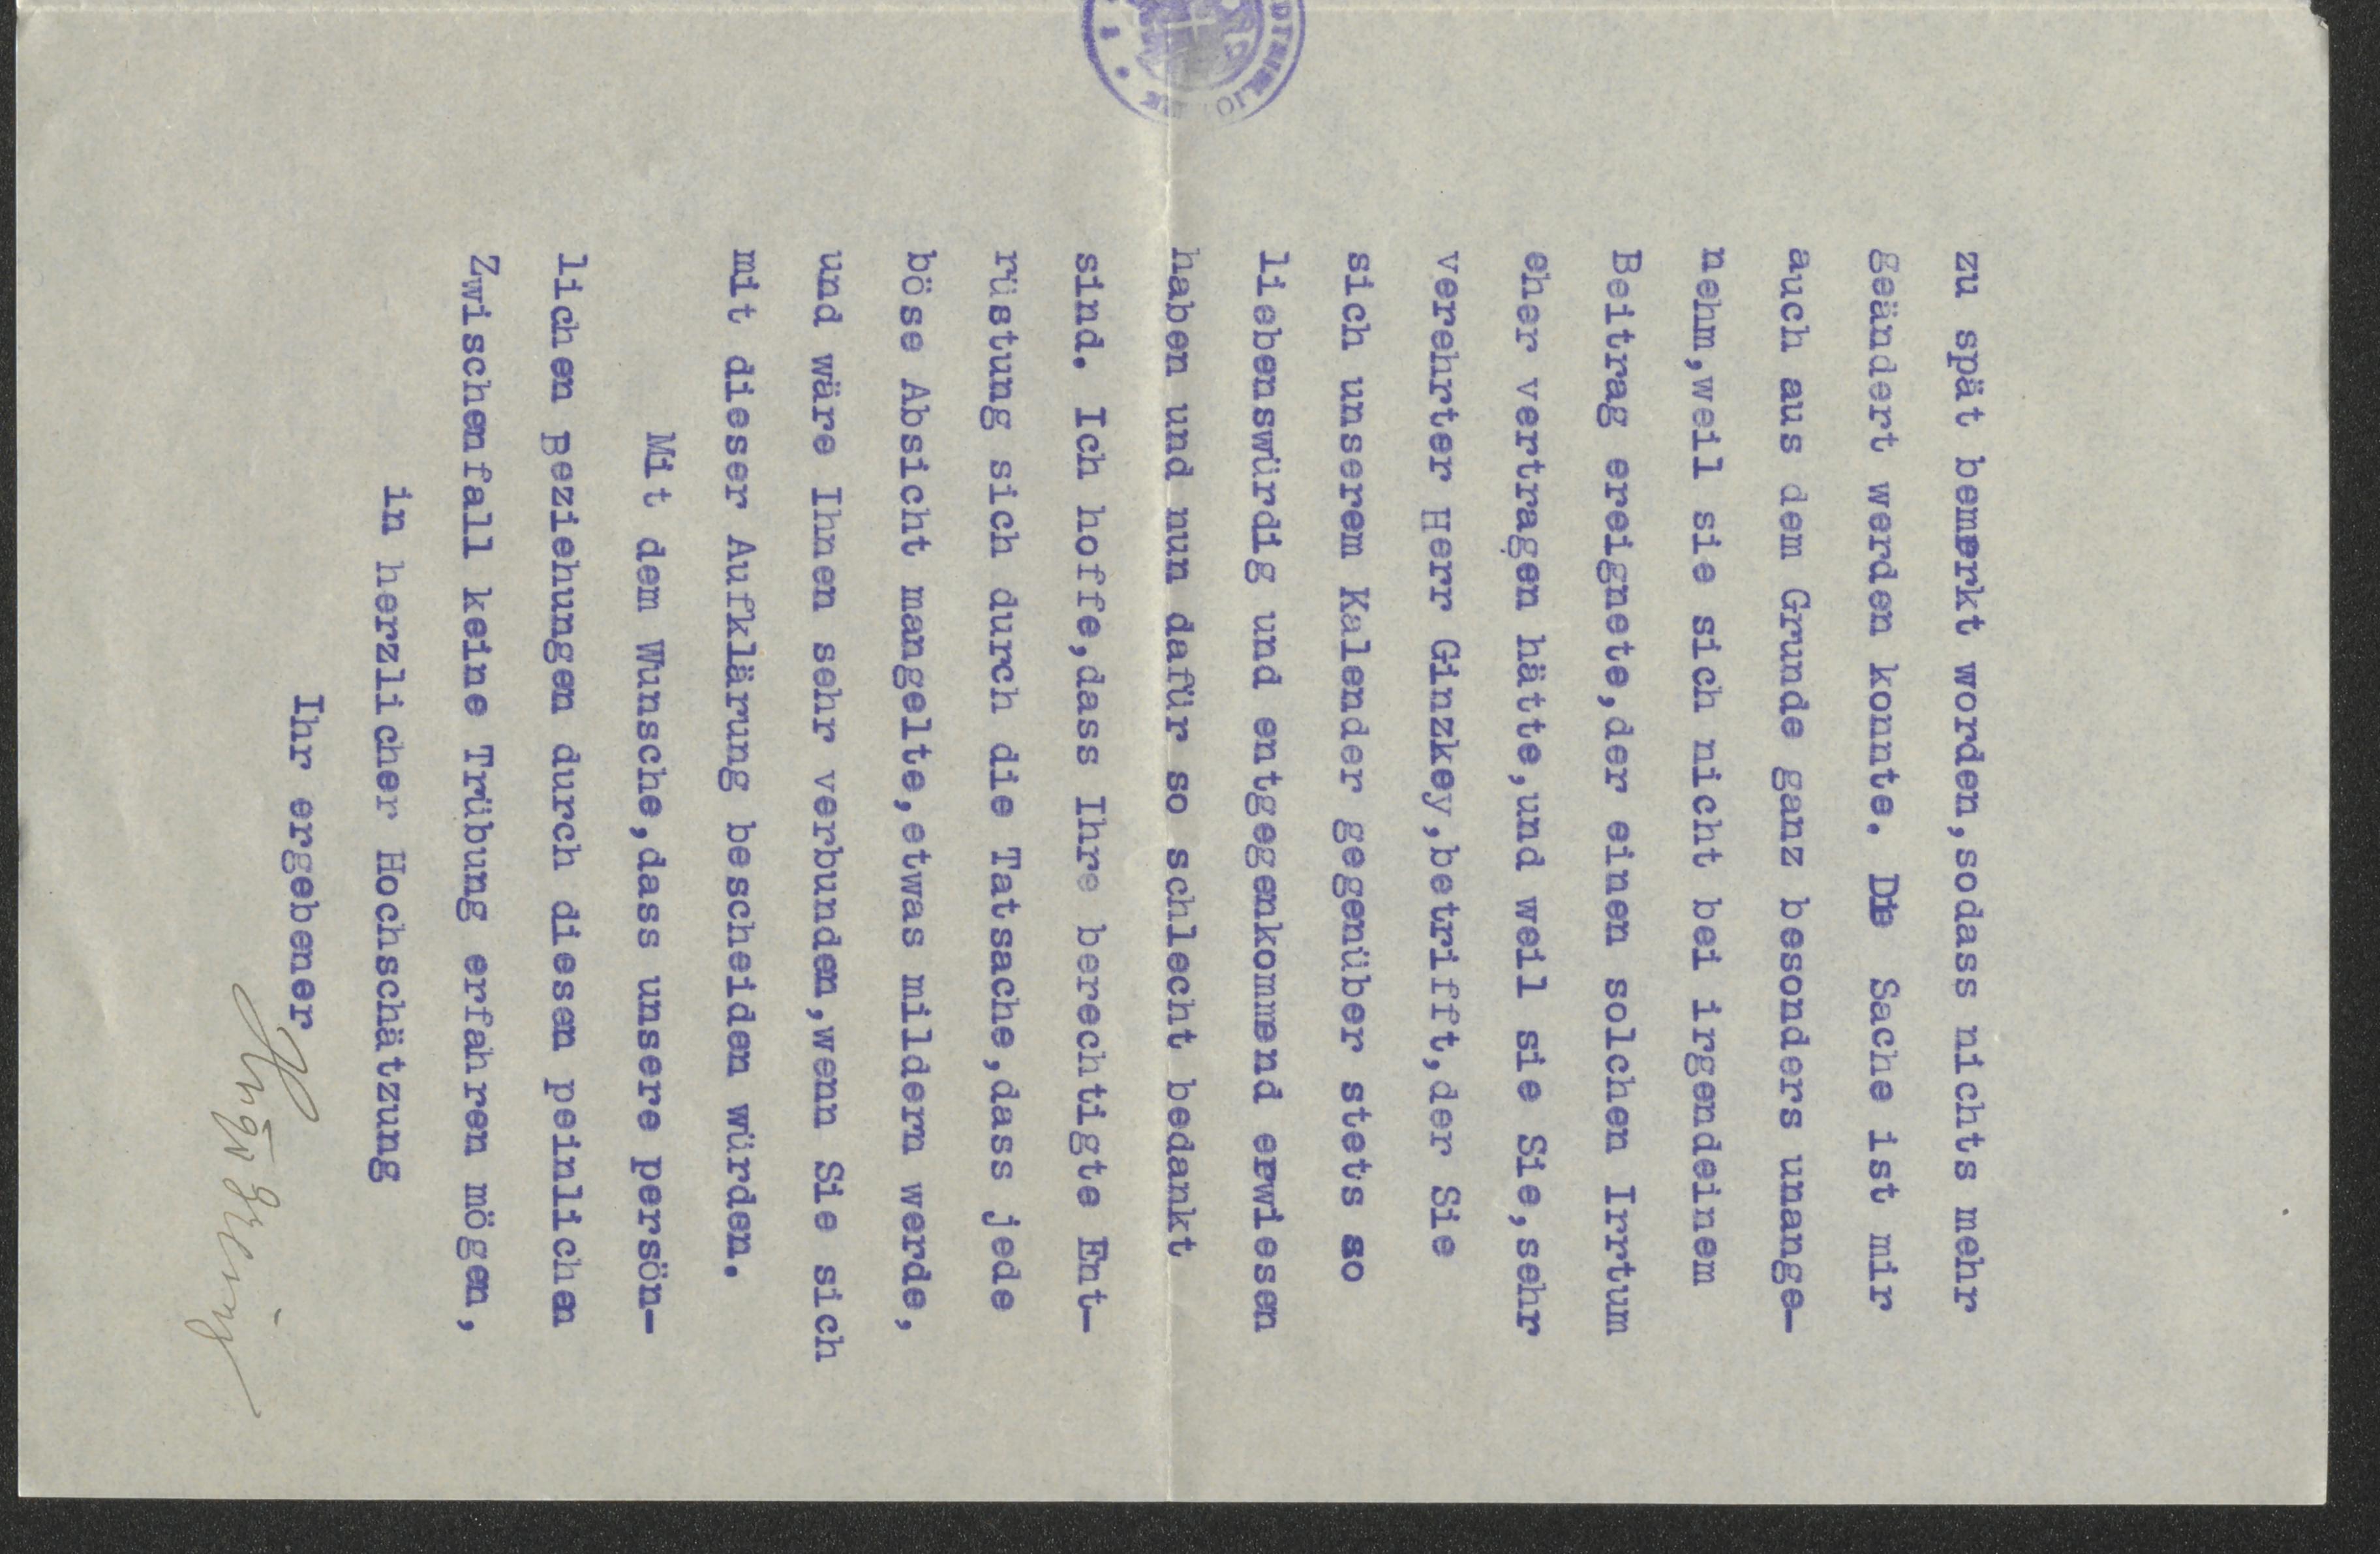 zu spät bemerkt worden,sodass nichts mehr
geändert werden konnte. Die Sache ist mir
auch aus dem Grunde ganz besonders unange-
nehm,weil sie sich nicht bei irgendeinem
Beitrag ereignete,der einen solchen Irrtum
eher vertragen hätte,und weil sie Sie,sehr
verehrter Herr Ginzkey,betrifft,der Sie
sich unserem Kalender gegenüber stets so
liebenswürdig und entgegenkommend erwiesen
haben und nun dafür so schlecht bedankt
sind. Ich hoffe,dass Ihre berechtigte Ent-
rüstung sich durch die Tatsache,dass jede
böse Absicht mangelte,etwas mildern werde,
und wäre Ihnen sehr verbunden,wenn Sie sich
mit dieser Aufklärung bescheiden würden.
Mit dem Wunsche,dass unsere persön-
lichen Beziehungen durch diesen peinlichen
Zwischenfall keine Trübung erfahren mögen,
in herzlicher Hochschätzung
Ihr ergebener
Hugo Greinz